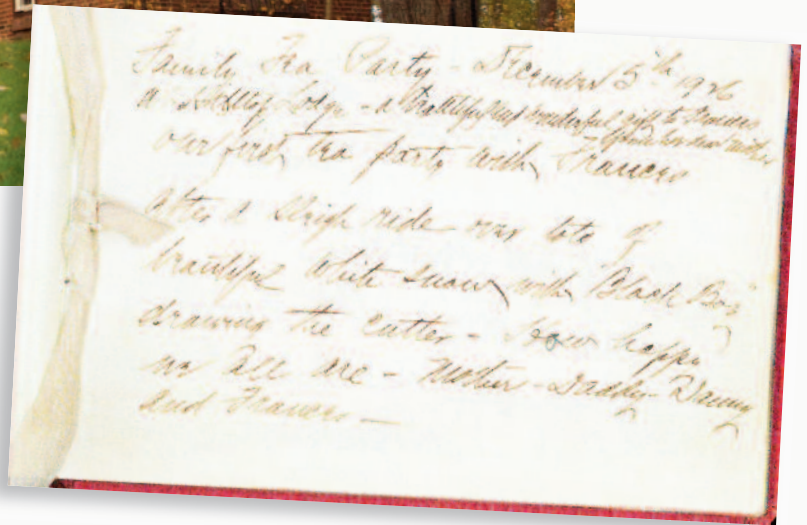 Family Tea Party - December 5th 1926
a Hilltop Lodge - a beautiful and wonderful gift to Frances
- from her dear mother
our first tea party with Frances
after a sleigh ride over lots of
beautiful white snow with Black Boy
drawing the cutter - How happy
we all are - Mother - Daddy - Danny
and Frances -